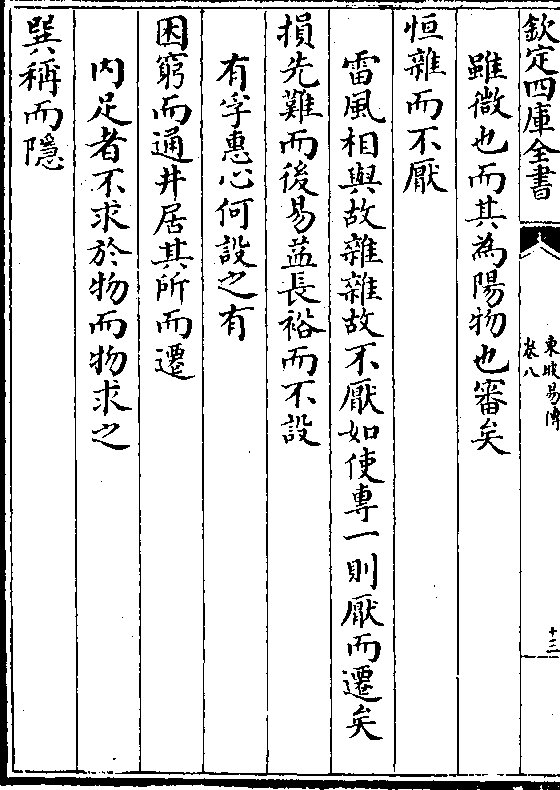 欽定四庫全書
東坡易傳
卷八
十三
雖微也而其為陽物也審矣
恒雜而不厭
雷風相與故雜雜故不厭如使專一則厭而遷矣
損先難而後易益長裕而不設
有孚惠心何設之有
困窮而通井居其所而遷
内足者不求於物而物求之
巽稱而隱